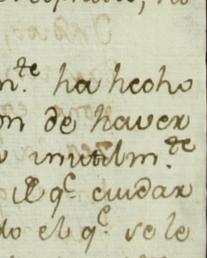 n.te ha hecho
on de haver
inutilm.te
el qe cuidar
do el qe se le